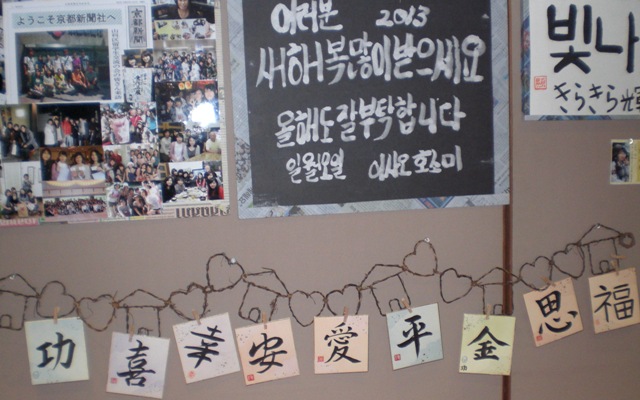 ようこそ京都新聞社へ
여러분 2013
새해 복 많이 받으세요
올해도 잘 부탁합니다
일월오일
빛나
きらきら輝
功
喜
幸
安
愛
平
金
思
福